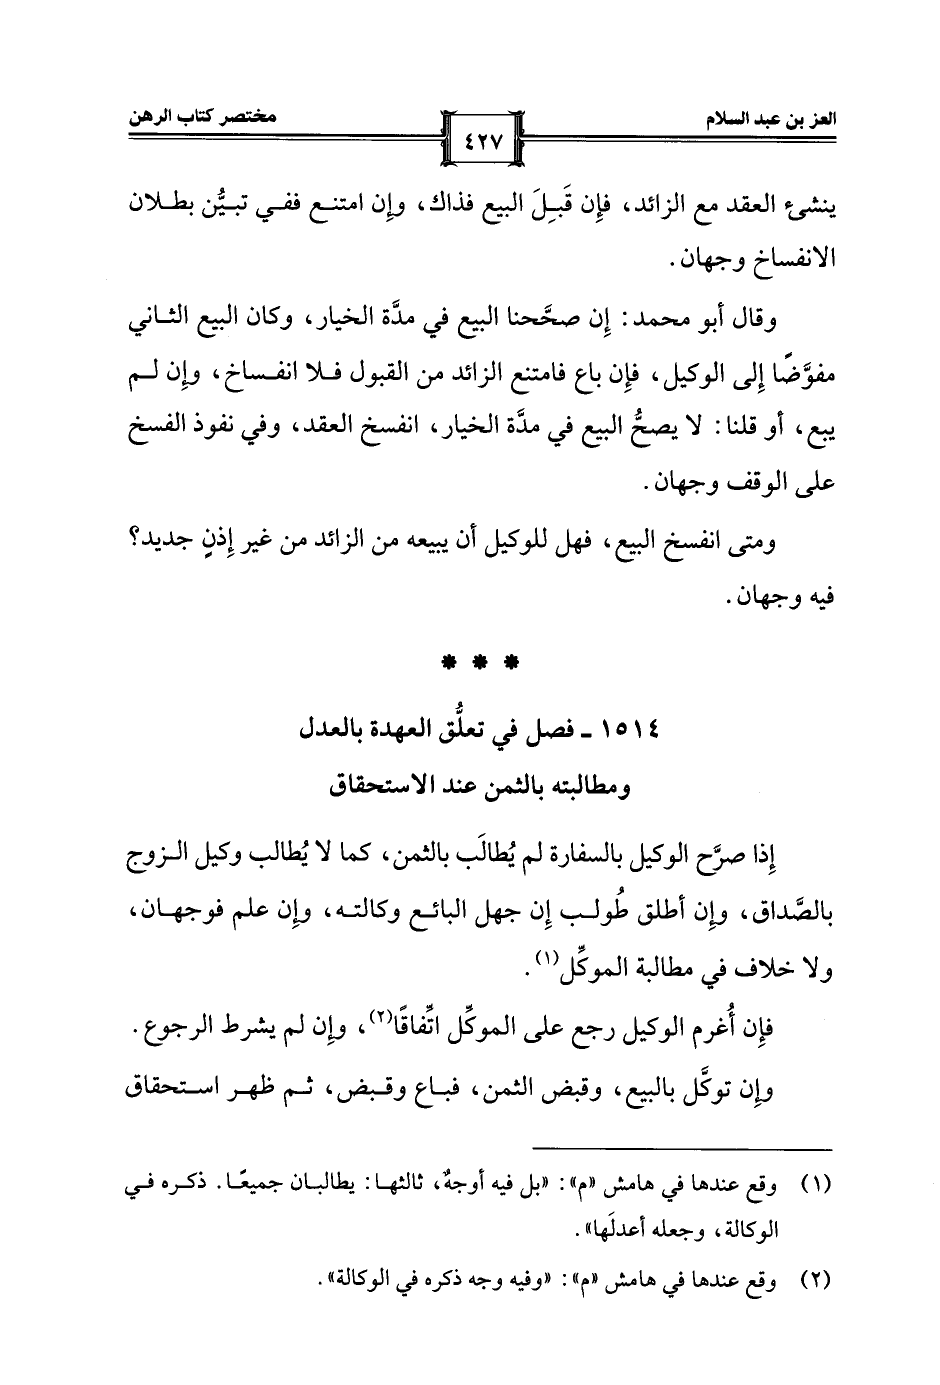 العز بن عبد السلام
٤٢٧
مختصر كتاب الرهن
ينشئ العقد مع الزائد، فإن قَبِلَ البيع فذاك، وإن امتنع ففي تبيُّن بطلان
الانفساخ وجهان.
وقال أبو محمد: إن صحَّحنا البيع في مدَّة الخيار، وكان البيع الثاني
مفوَّضًا إلى الوكيل، فإن باع فامتنع الزائد من القبول فلا انفساخ، وإن لم
يبع، أو قلنا: لا يصحُّ البيع في مدَّة الخيار، انفسخ العقد، وفي نفوذ الفسخ
على الوقف وجهان.
ومتى انفسخ البيع، فهل للوكيل أن يبيعه من الزائد من غير إذنٍ جديد؟
فيه وجهان.
* * *
١٥١٤ ـ فصل في تعلُّق العهدة بالعدل
ومطالبته بالثمن عند الاستحقاق
إذا صرَّح الوكيل بالسفارة لم يُطالَب بالثمن، كما لا يُطالب وكيل الزوج
بالصَّداق، وإن أطلق طُولب إن جهل البائع وكالته، وإن علم فوجهان،
ولا خلاف في مطالبة الموكِّل(١).
فإن أُغرم الوكيل رجع على الموكِّل اتِّفاقًا(٢)، وإن لم يشرط الرجوع.
وإن توكَّل بالبيع، وقبض الثمن، فباع وقبض، ثم ظهر استحقاق
(١) وقع عندها في هامش «م»: «بل فيه أوجهٌ، ثالثها: يطالبان جميعًا. ذكره في
الوكالة، وجعله أعدلَها».
(٢) وقع عندها في هامش «م»: «وفيه وجه ذكره في الوكالة».